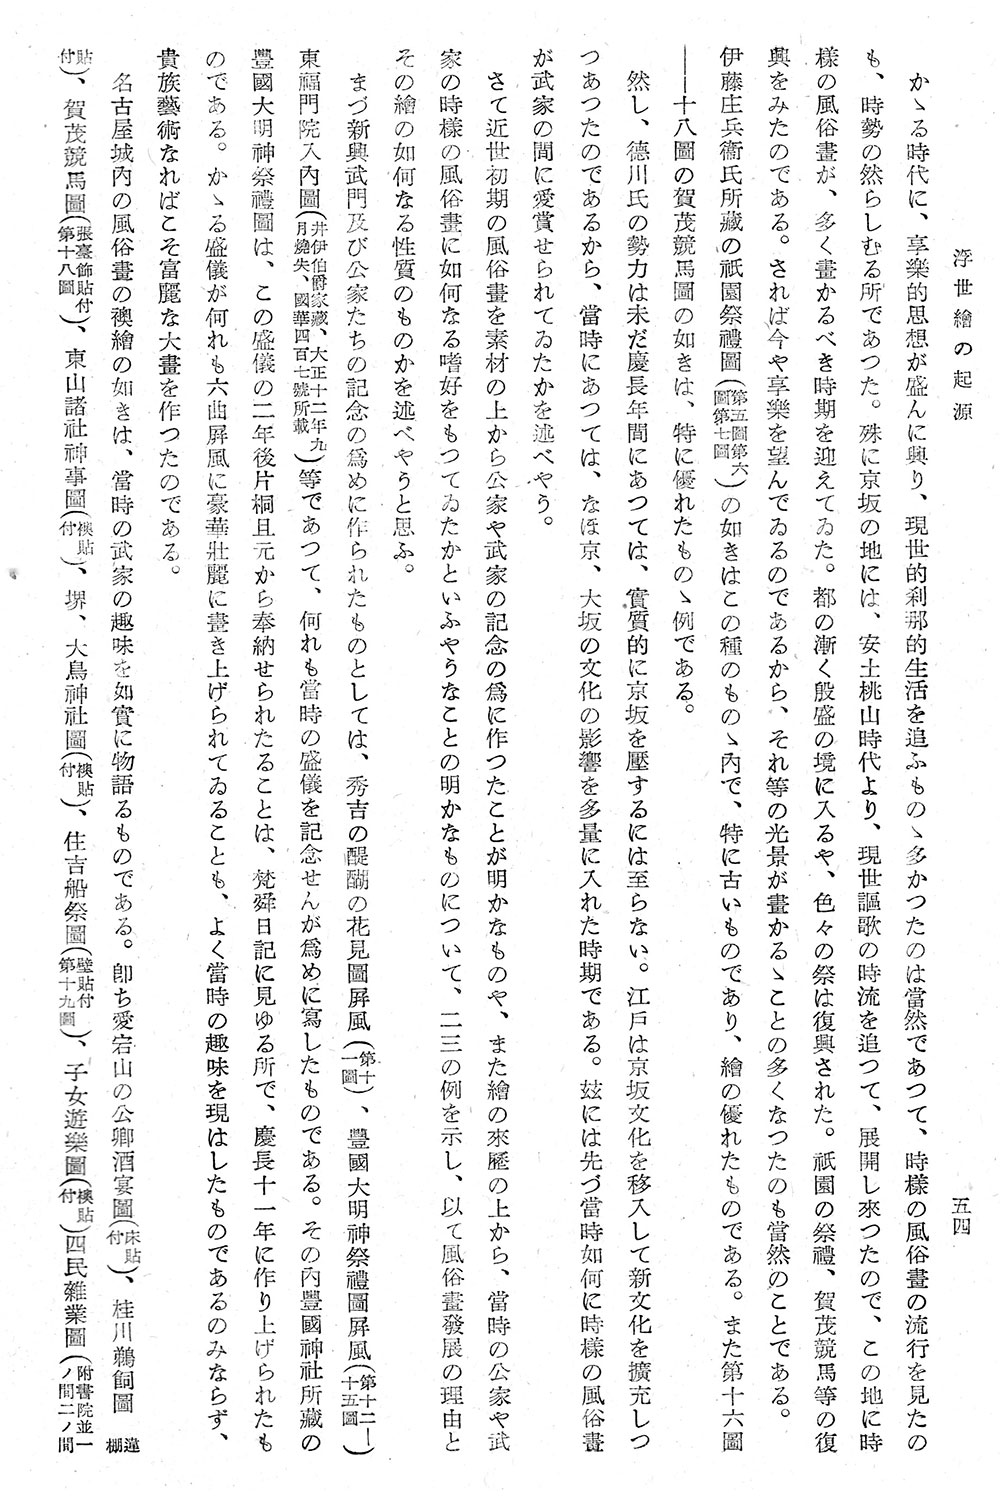 浮世繪の起源
五四
かゝる時代に、享樂的思想が盛んに興り、現世的利那的生活を追ふものゝ多かつたのは當然であつて、時樣の風俗畫の流行を見たの
も、時勢の然らしむる所であつた。殊に京坂の地には、安土桃山時代より、現世謳歌の時流を追つて、展開し來つたので、この地に時
樣の風俗畫が、多く畫かるべき時期を迎えてゐた。都の漸く殷盛の境に入るや、色々の祭は復興された。祇園の祭禮、賀茂競馬等の復
興をみたのである。されば今や享樂を望んでゐるのであるから、それ等の光景が畫かるゝことの多くなつたのも當然のことである。
伊藤庄兵衞氏所藏の祇園祭禮圖(第五圖第六圖第七圖)の如きはこの種のものゝ內で、特に古いものであり、繪の優れたものである。また第十六圖
――十八圖の賀茂競馬圖の如きは、特に優れたものゝ例である。
然し、德川氏の勢力は未だ慶長年間にあつては、實質的に京坂を壓するには至らない。江戶は京坂文化を移入して新文化を擴充しつ
つあつたのであるから、當時にあつては、なほ京、大坂の文化の影響を多量に入れた時期である。玆には先づ當時如何に時樣の風俗畫
が武家の間に愛賞せられてゐたかを述べやう。
さて近世初期の風俗畫を素材の上から公家や武家の記念の爲に作つたことが明かなものや、また繪の來歷の上から、當時の公家や武
家の時樣の風俗畫に如何なる嗜好をもつてゐたかといふやうなことの明かなものについて、二三の例を示し、以て風俗畫發展の理由と
その繪の如何なる性質のものかを述べやうと思ふ。
まづ新興武門及び公家たちの記念の爲めに作られたものとしては、秀吉の醍醐の花見圖屏風(第十一圖)、豐國大明神祭禮圖屏風(第十二―十五圖)
東福門院入內圖(井伊伯爵家藏、大正十二年九月燒失、國華四百七號所載)等であつて、何れも當時の盛儀を記念せんが爲めに寫したものである。その內豐國神社所藏の
豐國大明神祭禮圖は、この盛儀の二年後片桐且元から奉納せられたることは、梵舜日記に見ゆる所で、慶長十一年に作り上げられたも
のである。かゝる盛儀が何れも六曲屏風に豪華壯麗に畫き上げられてゐることも、よく當時の趣味を現はしたものであるのみならず、
貴族藝術なればこそ富麗な大畫を作つたのである。
名古屋城內の風俗畫の襖繪の如きは、當時の武家の趣味を如實に物語るものである。卽ち愛宕山の公卿酒宴圖(床貼付)、桂川鵜飼圖違棚
貼付)、賀茂競馬圖(張臺飾貼付第十八圖)、東山諸社神事圖(襖貼付)、堺、大鳥神社圖(襖貼付)、住吉船祭圖(壁貼付第十九圖)、子女遊樂圖(襖貼付)四民雜業圖(附書院並一ノ間二ノ間